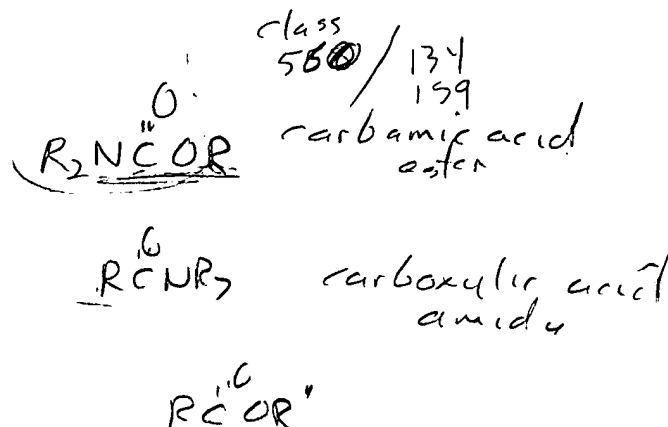 class
/ 134
159
O
R2NCOR carbamic acid
ester
O
RCNR2 carboxylic acid
amide
O
RCOR'